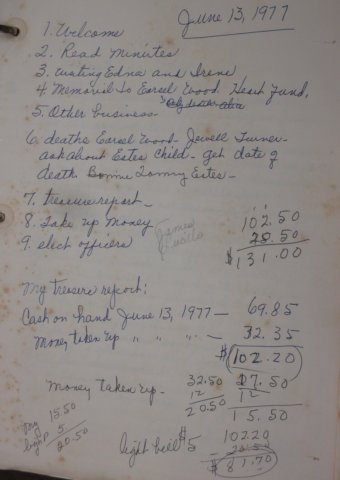 June 13, 1977
1. Welcome
2. Read Minutes
3. visiting Edna and Irene
4 Memorial to Earsel Wood Heart Fund,
5. Other business-
6. deaths Earsel Wood- Jewell Turner-
ask about Estes Child- get date of
death Bonnie Tommy Estes-
7. treasure report-
8. Take up Money
102.50
28.50
9. elect officers
$131.00
My tresure report:
Cash on hand June 13, 1977 — 69.85
Money taken up " " " — 32.35
$102.20
Money taken up- 32.50 27.50
12 12
20.50 15.50
my 15.50
light 5
20.50
light bill $5
102.20
20.50
$81.70